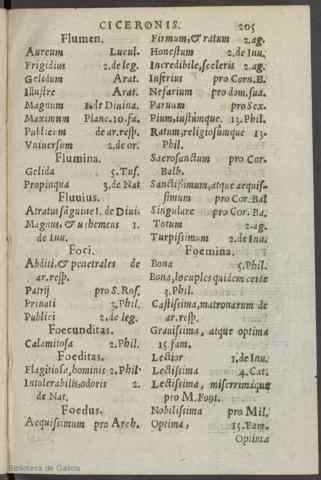 CICERONIS. 205
Flumen.
Aureum Lucul.
Frigidius 2.de leg.
Gelidum Arat.
Illustre Arat.
Magnum 1.de Diuina.
Maximum Planc.10.fa.
Publicum de ar.resp.
Vniuersum 2.de or.
Flumina.
Gelida 5.Tus.
Propinqua 3.de Nat
Fluuius.
Atratus sãguine 1.de Diui.
Magnus, & vehemens 1.
de Inu.
Foci.
Abditi, & penetrales de
ar.resp.
Patrij pro S.Rof.
Priuati 3.Phil.
Publici 2.de leg.
Foecunditas.
Calamitosa 2.Phil.
Foeditas.
Flagitiosa, hominis 2.Phil.
Intolerabilis, odoris 2.
de Nat.
Foedus.
Aequissimum pro Arch.
Firmum, & ratum 2.ag.
Honestum 2.de Inu.
Incredibile, sceleris 2.ag.
Inferius pro Corn.B.
Nefarium pro dom.sua.
Paruum pro Sex.
Pium, iustumque. 13.Phil.
Ratum, religiosumque 13.
Phil.
Sacrosanctum pro Cor.
Balb.
Sanctissimum, atque aequis-
simum pro Cor.Bal
Singulare pro Cor. Ba.
Totum 2.ag.
Turpissimum 2.de Inu.
Foemina.
Bona 5.Phil.
Bona, locuples quidem certe
3.Phil.
Castissima, matronarum de
ar.resp.
Grauissima, atque optima
15 fam.
Lectior 1.de Inu.
Lectissima 4.Cat.
Lectissima, miserrimaque
pro M.Font.
Nobilissima pro Mil.
Optima, 15.Fam.
Optima
Biblioteca de Galicia